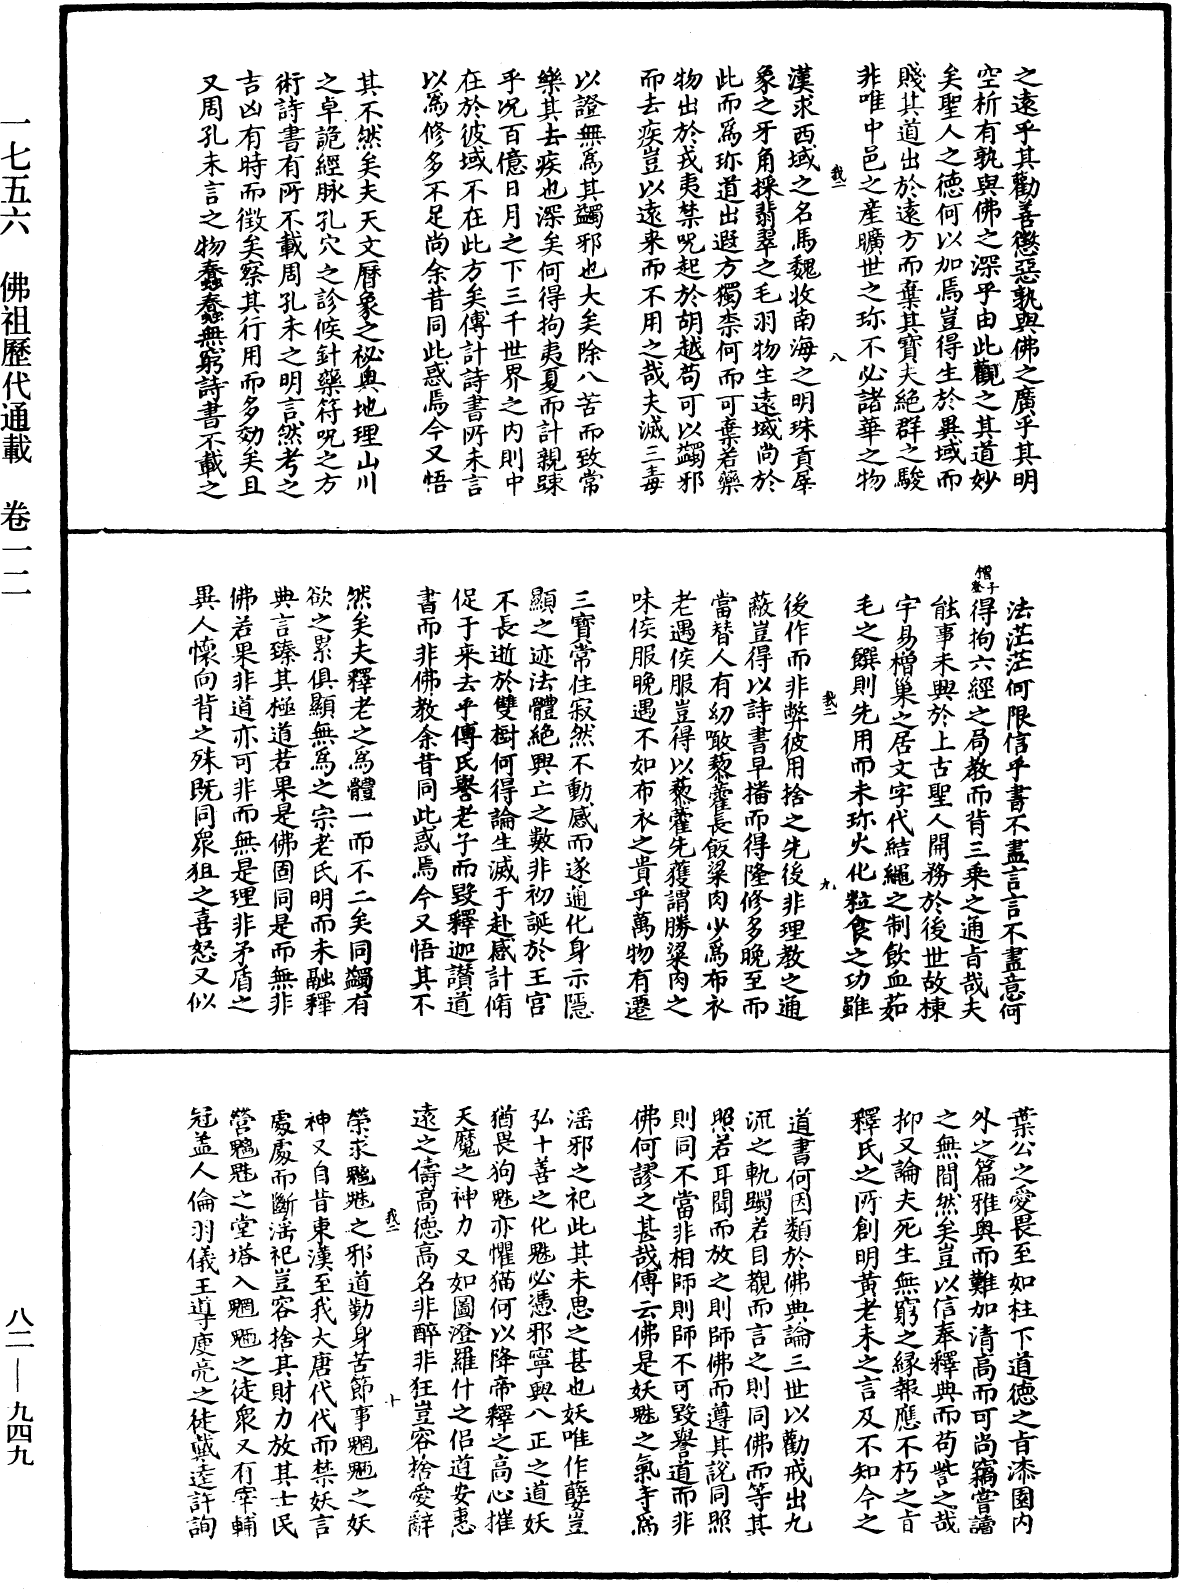 一七五六　佛祖歷代通載　卷一二
八二—九四九
之遠乎其勸善懲惡孰與佛之廣乎其明
空析有孰與佛之深乎由此觀之其道妙
矣聖人之德何以加焉豈得生於異域而
賤其道出於遠方而棄其寶夫絕群之駿
非唯中邑之産曠世之珎不必諸華之物
我二　八
漢求西域之名馬魏收南海之明珠貢犀
象之牙角採翡翠之毛羽物生遠域尚於
此而爲珎道出遐方獨柰何而可棄若藥
物出於戎夷禁呪起於胡越苟可以蠲邪
而去疾豈以遠来而不用之哉夫滅三毒
以證無爲其蠲邪也大矣除八苦而致常
樂其去疾也深矣何得拘夷夏而計親踈
乎况百億日月之下三千世界之内則中
在於彼域不在此方矣傅計詩書所未言
以爲修多不足尚余昔同此惑焉今又悟
其不然矣夫天文曆象之秘奥地理山川
之卓詭經脉孔穴之診候針藥符呪之方
術詩書有所不載周孔未之明言然考之
吉凶有時而徵矣察其行用而多効矣且
又周孔未言之物蠢蠢無窮詩書不載之
法茫茫何限信乎書不盡言言不盡意何
得拘六經之局教而背三乘之通旨哉夫
能事未興於上古聖人開務於後世故棟
宇易橧巢之居文字代結繩之制飲血茹
毛之饌則先用而未珎火化粒食之功雖
我二　九
後作而非弊彼用捨之先後非理教之通
蔽豈得以詩書早播而得隆修多晚至而
當替人有幼噉藜藿長飯粱肉少爲布衣
老遇侯服豈得以藜藿先獲謂勝粱肉之
味侯服晚遇不如布衣之貴乎萬物有遷
三寶常住寂然不動感而遂通化身示隱
顯之迹法體絕興亡之數非初誕於王宮
不長逝於雙樹何得論生滅于赴感計脩
促于来去乎傅氏譽老子而毀釋迦讃道
書而非佛教余昔同此惑焉今又悟其不
然矣夫釋老之爲體一而不二矣同蠲有
欲之累俱顯無爲之宗老氏明而未融釋
典言臻其極道若果是佛固同是而無非
佛若果非道亦可非而無是理非矛盾之
異人懷向背之殊既同衆狙之喜怒又似
葉公之愛畏至如柱下道德之旨漆園内
外之篇雅奥而難加清高而可尚竊嘗讀
之無間然矣豈以信奉釋典而苟訾之哉
抑又論夫死生無窮之緣報應不朽之旨
釋氏之所創明黄老未之言及不知今之
道書何因類於佛典論三世以勸戒出九
流之軌躅若目覩而言之則同佛而等其
照若耳聞而放之則師佛而遵其說同照
則同不當非相師則師不可毀譽道而非
佛何謬之甚哉傅云佛是妖魅之氣寺爲
淫邪之祀此其未思之甚也妖唯作孽豈
弘十善之化魅必憑邪寧興八正之道妖
猶畏狗魅亦懼猫何以降帝釋之高心摧
天魔之神力又如圖澄羅什之侣道安惠
遠之儔高德高名非醉非狂豈容捨愛辭
我二　十
榮求魑魅之邪道勤身苦節事魍魎之妖
神又自昔東漢至我大唐代代而禁妖言
處處而斷淫祀豈容捨其財力放其士民
營魑魅之堂塔入魍魎之徒衆又有宰輔
冠盖人倫羽儀王導庾亮之徒戴逵許詢